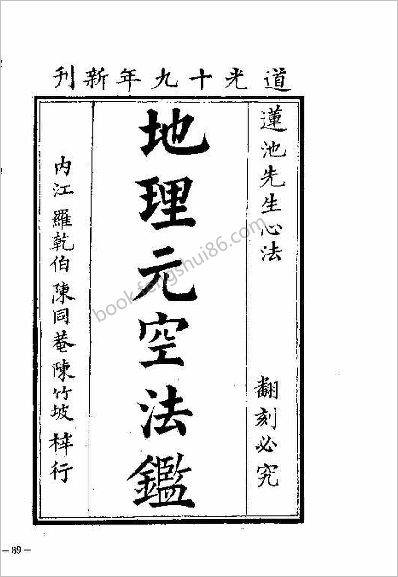 道光十九年新刊
蓮池先生心法
翻刻必究
地理元空法鑑
内江 羅乾伯 陳同菴 陳竹坡 梓行
book.fengshui86.com
— 89 —